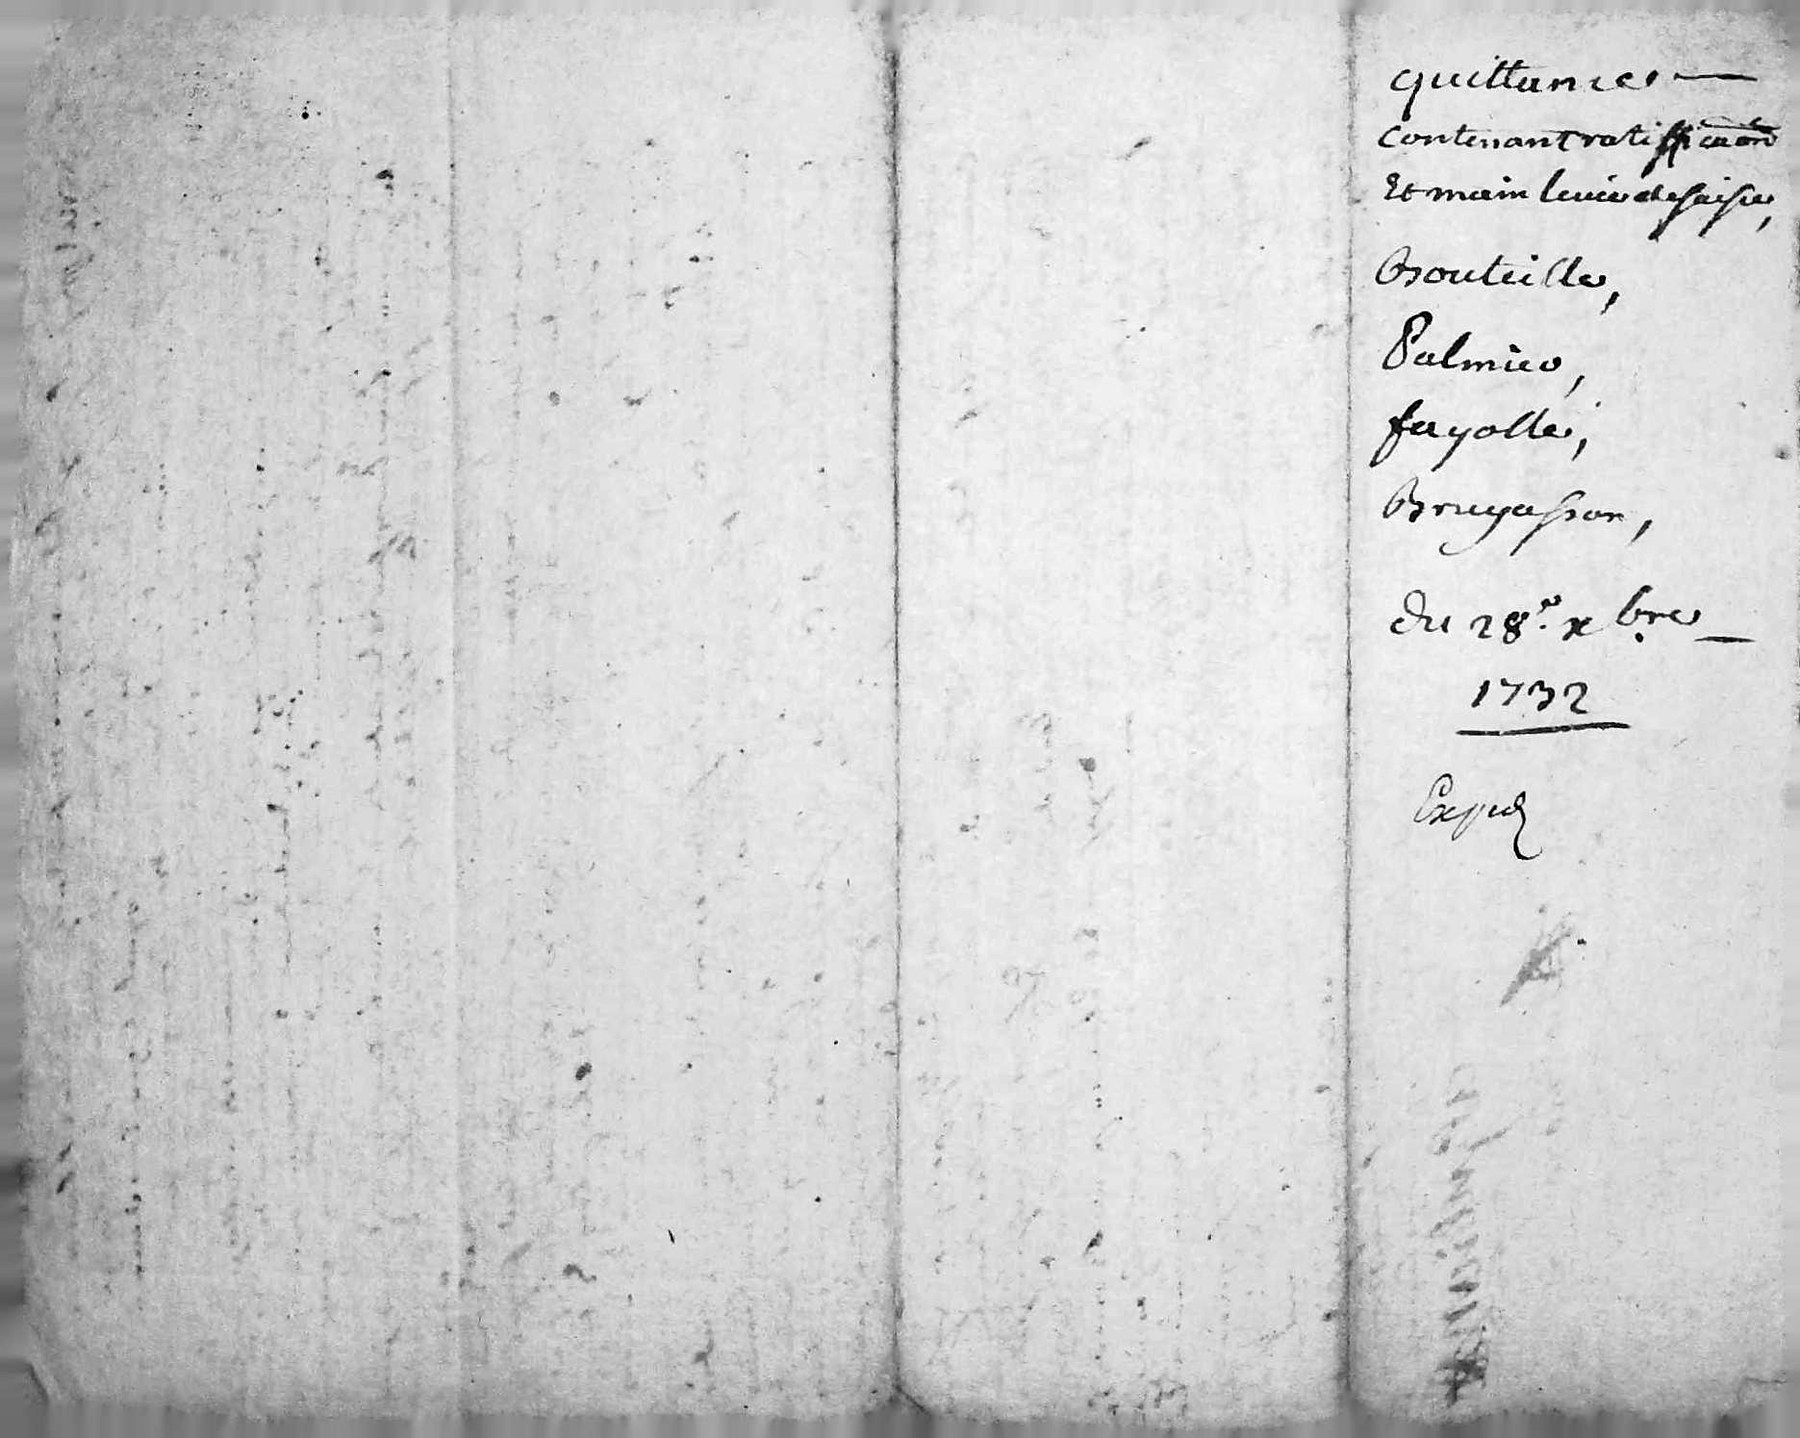 quittance —
contenant ratifficaon
Et main levée de saisie,
Bouteille,
Palmier,
fayolle,
Bruyasson,
du 28.e xbre —
1732
Exped